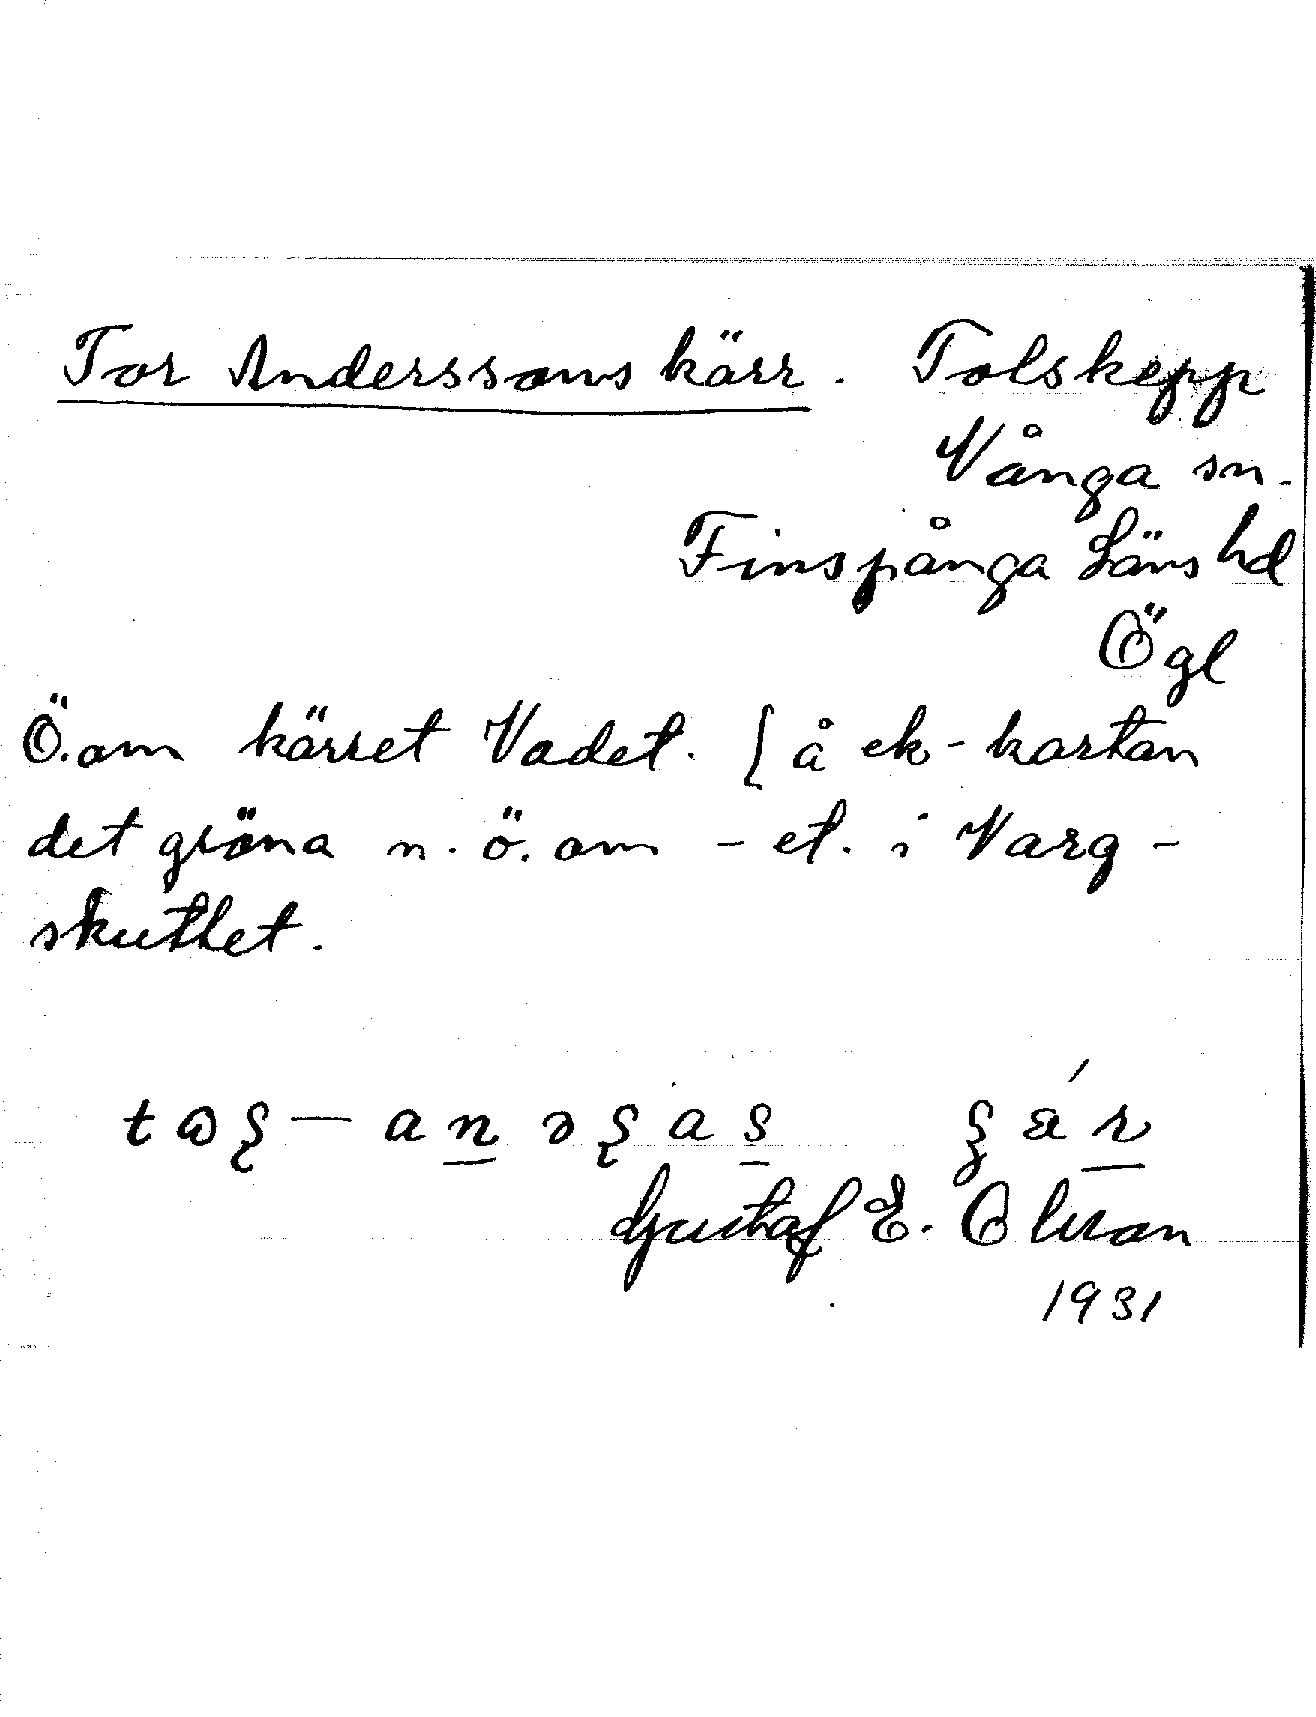 Tor Anderssons kärr. Tolskepp
Vånga sn.
Finspånga Läns hd
Ögl
Ö. om kärret Vadet. [å ek-kartan
det gröna n. ö. om - et. i Varg-
skuttet.
Gustaf E. Olsson
1931